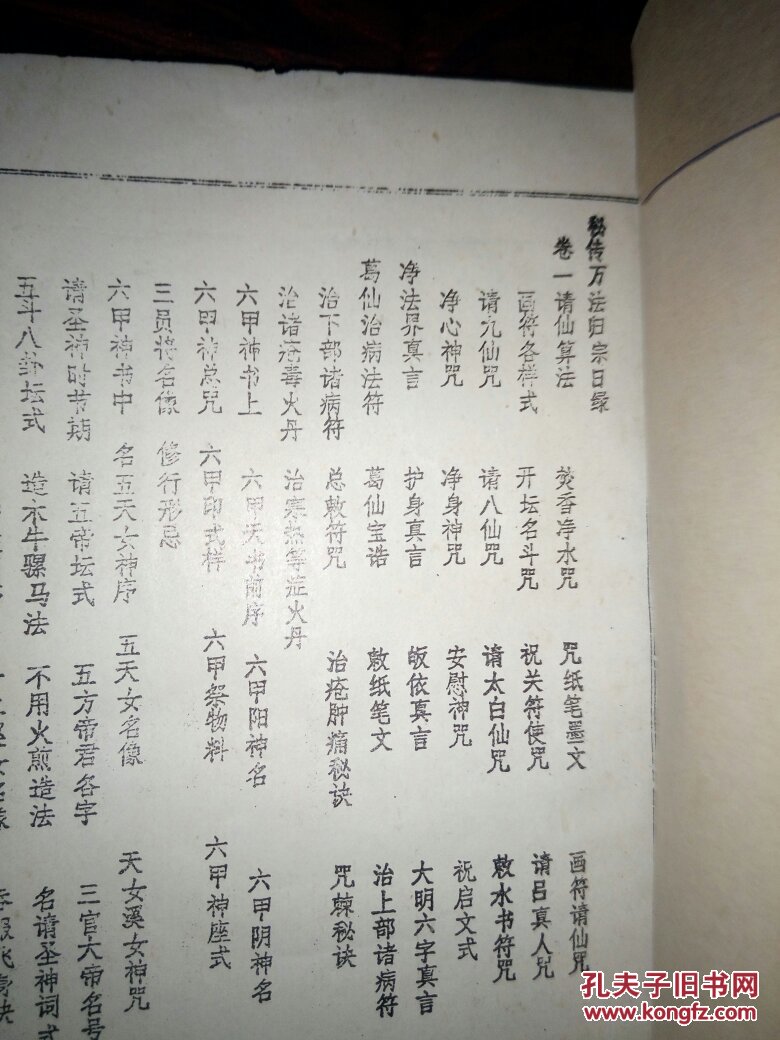 秘传万法归宗目录
卷一请仙算法 焚香净水咒 咒纸笔墨文 画符请仙咒
画符各样式 开坛名斗咒 祝关符使咒 请吕真人咒
请九仙咒 请八仙咒 请太白仙咒 敕水书符咒
净心神咒 净身神咒 安慰神咒 祝启文式
净法界真言 护身真言 皈依真言 大明六字真言
葛仙治病法符 葛仙宝诰 敕纸笔文 治上部诸病符
治下部诸病符 总敕符咒 治疮肿痛秘诀 咒棘秘诀
治诸疮毒火丹 治寒热等症火丹
六甲神书上 六甲天书前序 六甲阳神名 六甲阴神名
六甲神总咒 六甲印式样 六甲祭物料 六甲神座式
三员将名像 修行形忌
六甲神书中 名五天女神序 五天女名像 天女溪女神咒
请圣神时节期 请五帝坛式 五方帝君各字 三官大帝名号
五斗八卦坛式 造木牛骡马法 不用火煎造法 名请圣神词式
孔夫子旧书网
www.kongfz.com